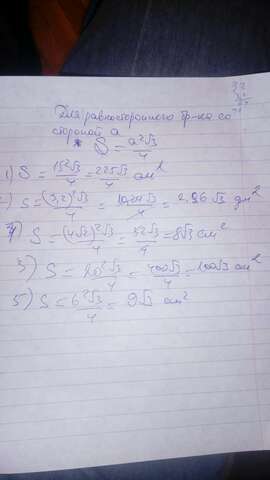 Для равностороннего тр-ка со
стороной а
S = a²√3/4
1) S = 15²√3/4 = 225√3/4 см²
2) S = (3,2)²√3/4 = 10,24√3/4 = 2,56√3 дм²
4) S = (4√2)²√3/4 = 32√3/4 = 8√3 см²
3) S = 20²√3/4 = 400√3/4 = 100√3 см²
5) S = 6²√3/4 = 9√3 см²